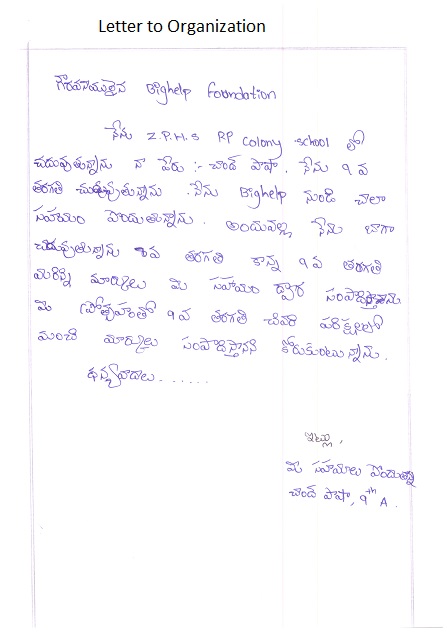 Letter to Organization
గౌరవనీయులైన Bighelp foundation
నేను Z.P.H.S RP Colony school లో
చదువుతున్నాను నా పేరు :- చాంద్ పాషా. నేను 9 వ
తరగతి చదువుతున్నాను. నేను Bighelp నుండి చాలా
సహాయం పొందుతున్నాను. అందువల్ల నేను బాగా
చదువుతున్నాను 8వ తరగతి కాన్న 9 వ తరగతి
మరిన్ని మార్కులు మీ సహాయం ద్వార సంపాదిస్తాను
మీ ప్రోత్సహంతో 9 వ తరగతి చివరి పరిక్షలలో
మంచి మార్కులు సంపాదిస్తానని కోరుకుంటున్నాను.
ధన్యవాదాలు. . . . . .
ఇట్లు,
మీ సహాయాలు పొందుతున్న
చాంద్ పాషా, 9th A.